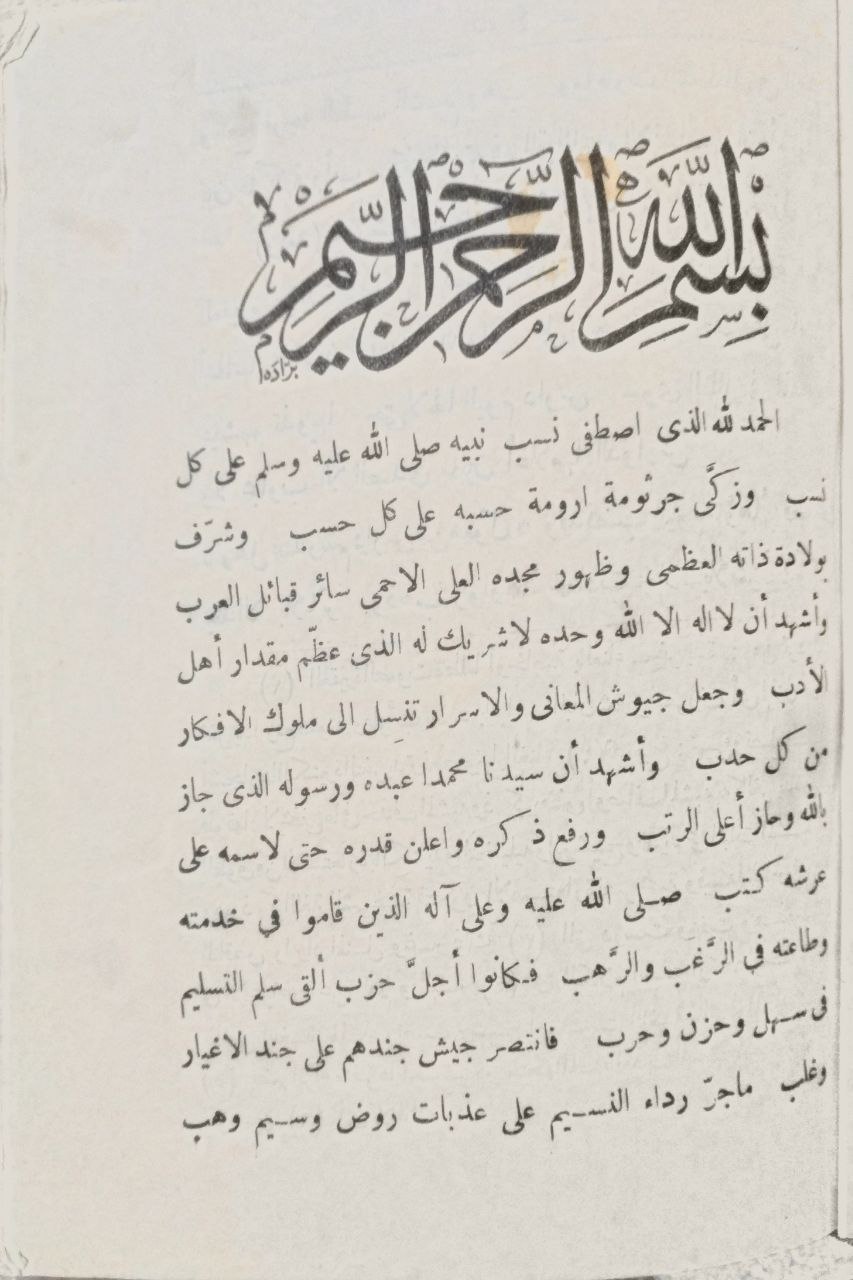 بِسْمِ اللّٰهِ الرَّحْمٰنِ الرَّحِيمِ
الحمد لله الذى اصطفى نسب نبيه صلى الله عليه وسلم على كل
نسب وزكَّى جرثومة ارومة حسبه على كل حسب وشرّف
بولادة ذاته العظمى وظهور مجده العلى الاحمى سائر قبائل العرب
وأشهد أن لااله الا الله وحده لاشريك له الذى عظّم مقدار أهل
الأدب وجعل جيوش المعانى والاسرار تنسِل الى ملوك الافكار
من كل حدب وأشهد أن سيدنا محمدا عبده ورسوله الذى جاز
بالله وحاز أعلى الرتب ورفع ذكره واعلن قدره حتى لاسمه على
عرشه كتب صلى الله عليه وعلى آله الذين قاموا في خدمته
وطاعته في الرَّغب والرَّهب فكانوا أجلَّ حزب ألقى سلم التسليم
فى سهل وحزن وحرب فانتصر جيش جندهم على جند الاغيار
وغلب ماجرّ رداء النسيم على عذبات روض وسيم وهب